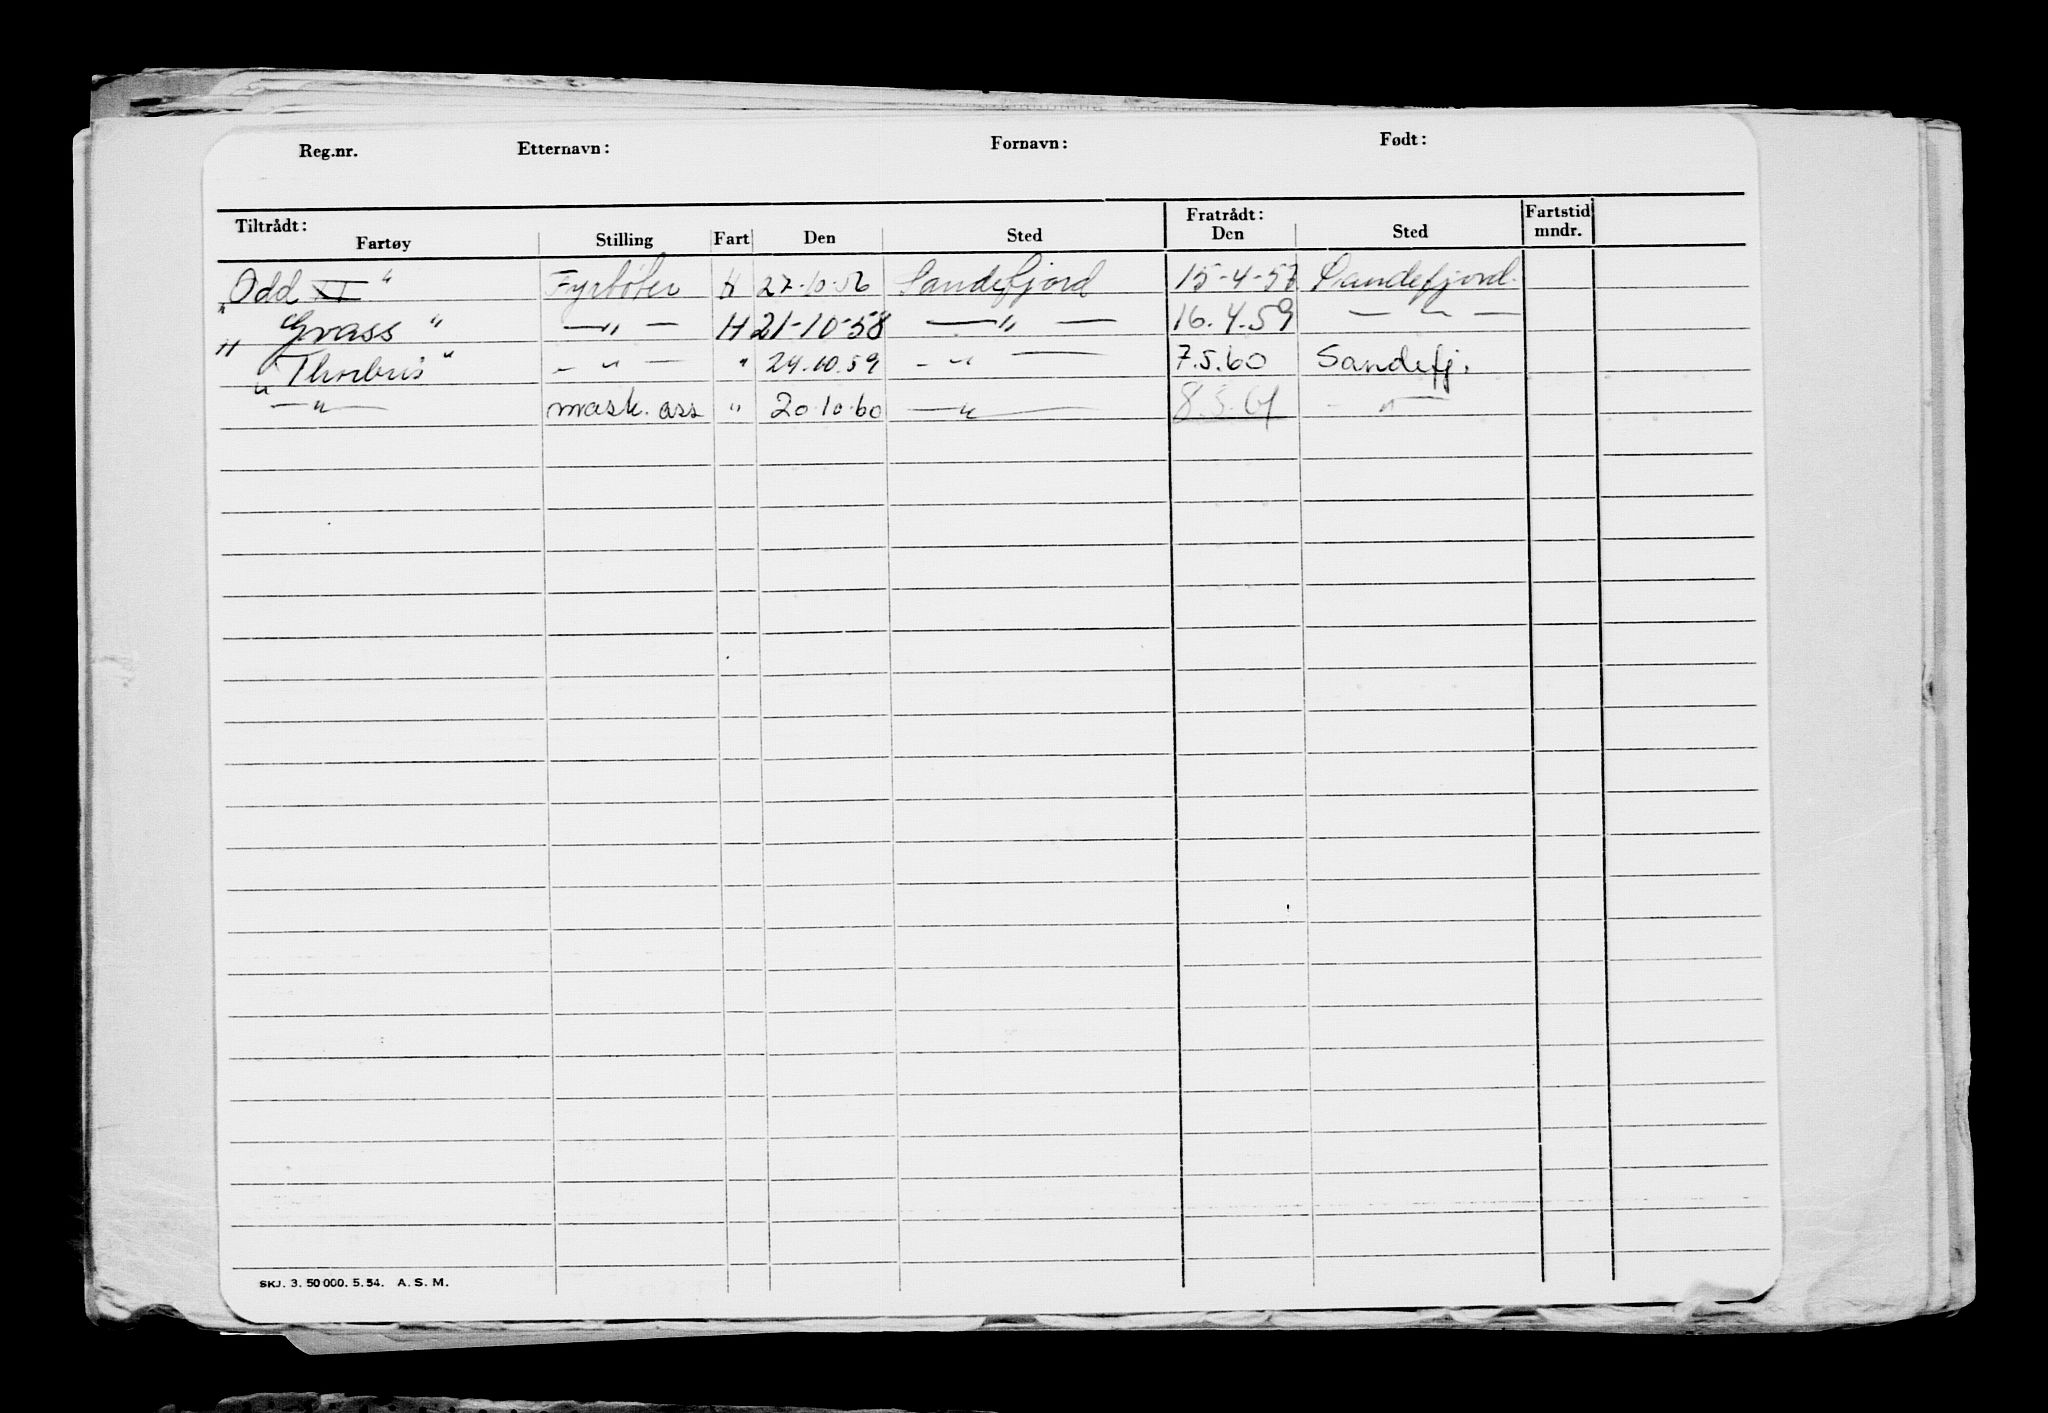 Reg.nr. Etternavn: Fornavn: Født:
Tiltrådt: Fratrådt: Fartstid
Fartøy Stilling Fart Den Sted Den Sted mndr.
"Odd XI" Fyrbøter H 27-10-56 Sandefjord 15-4-57 Sandefjord.
"Gvass" —"— H 21-10-58 —"— 16.4.59 —"—
"Thorbris" —"— " 24.10.59 —"— 7.5.60 Sandefj.
—"— mask. ass " 20.10.60 —"— —"—
SKJ. 3. 50 000. 5. 54. A. S. M.